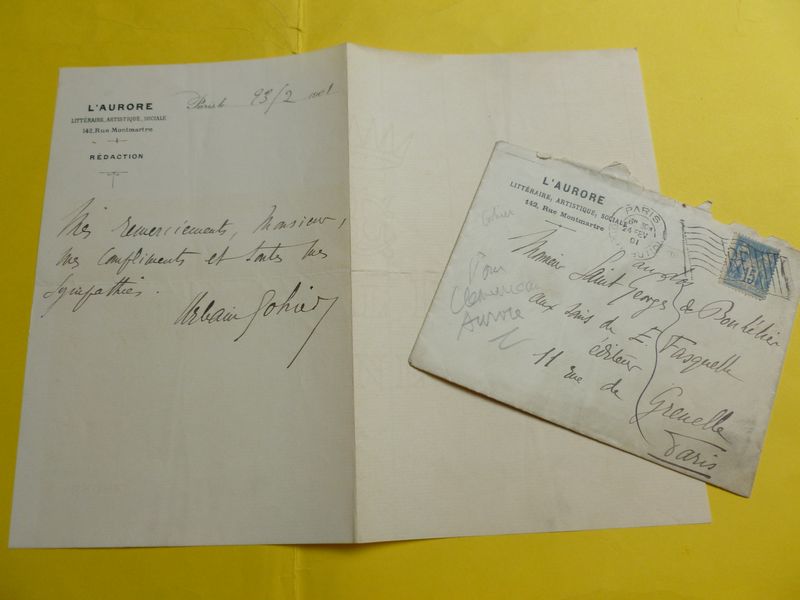 L'AURORE
LITTÉRAIRE, ARTISTIQUE, SOCIALE
142, Rue Montmartre
RÉDACTION
Paris le 23/2 1901
Mes remerciements, Monsieur,
mes compliments et toutes mes
sympathies.
Urbain Gohier
L'AURORE
LITTÉRAIRE, ARTISTIQUE, SOCIALE
142, Rue Montmartre
PARIS
24 FEV
01
15
Gohier
Pour
Clemenceau
Aurore
Monsieur Saint-Georges de Bouhélier
aux soins de E. Fasquelle
éditeur
11 rue de Grenelle
Paris